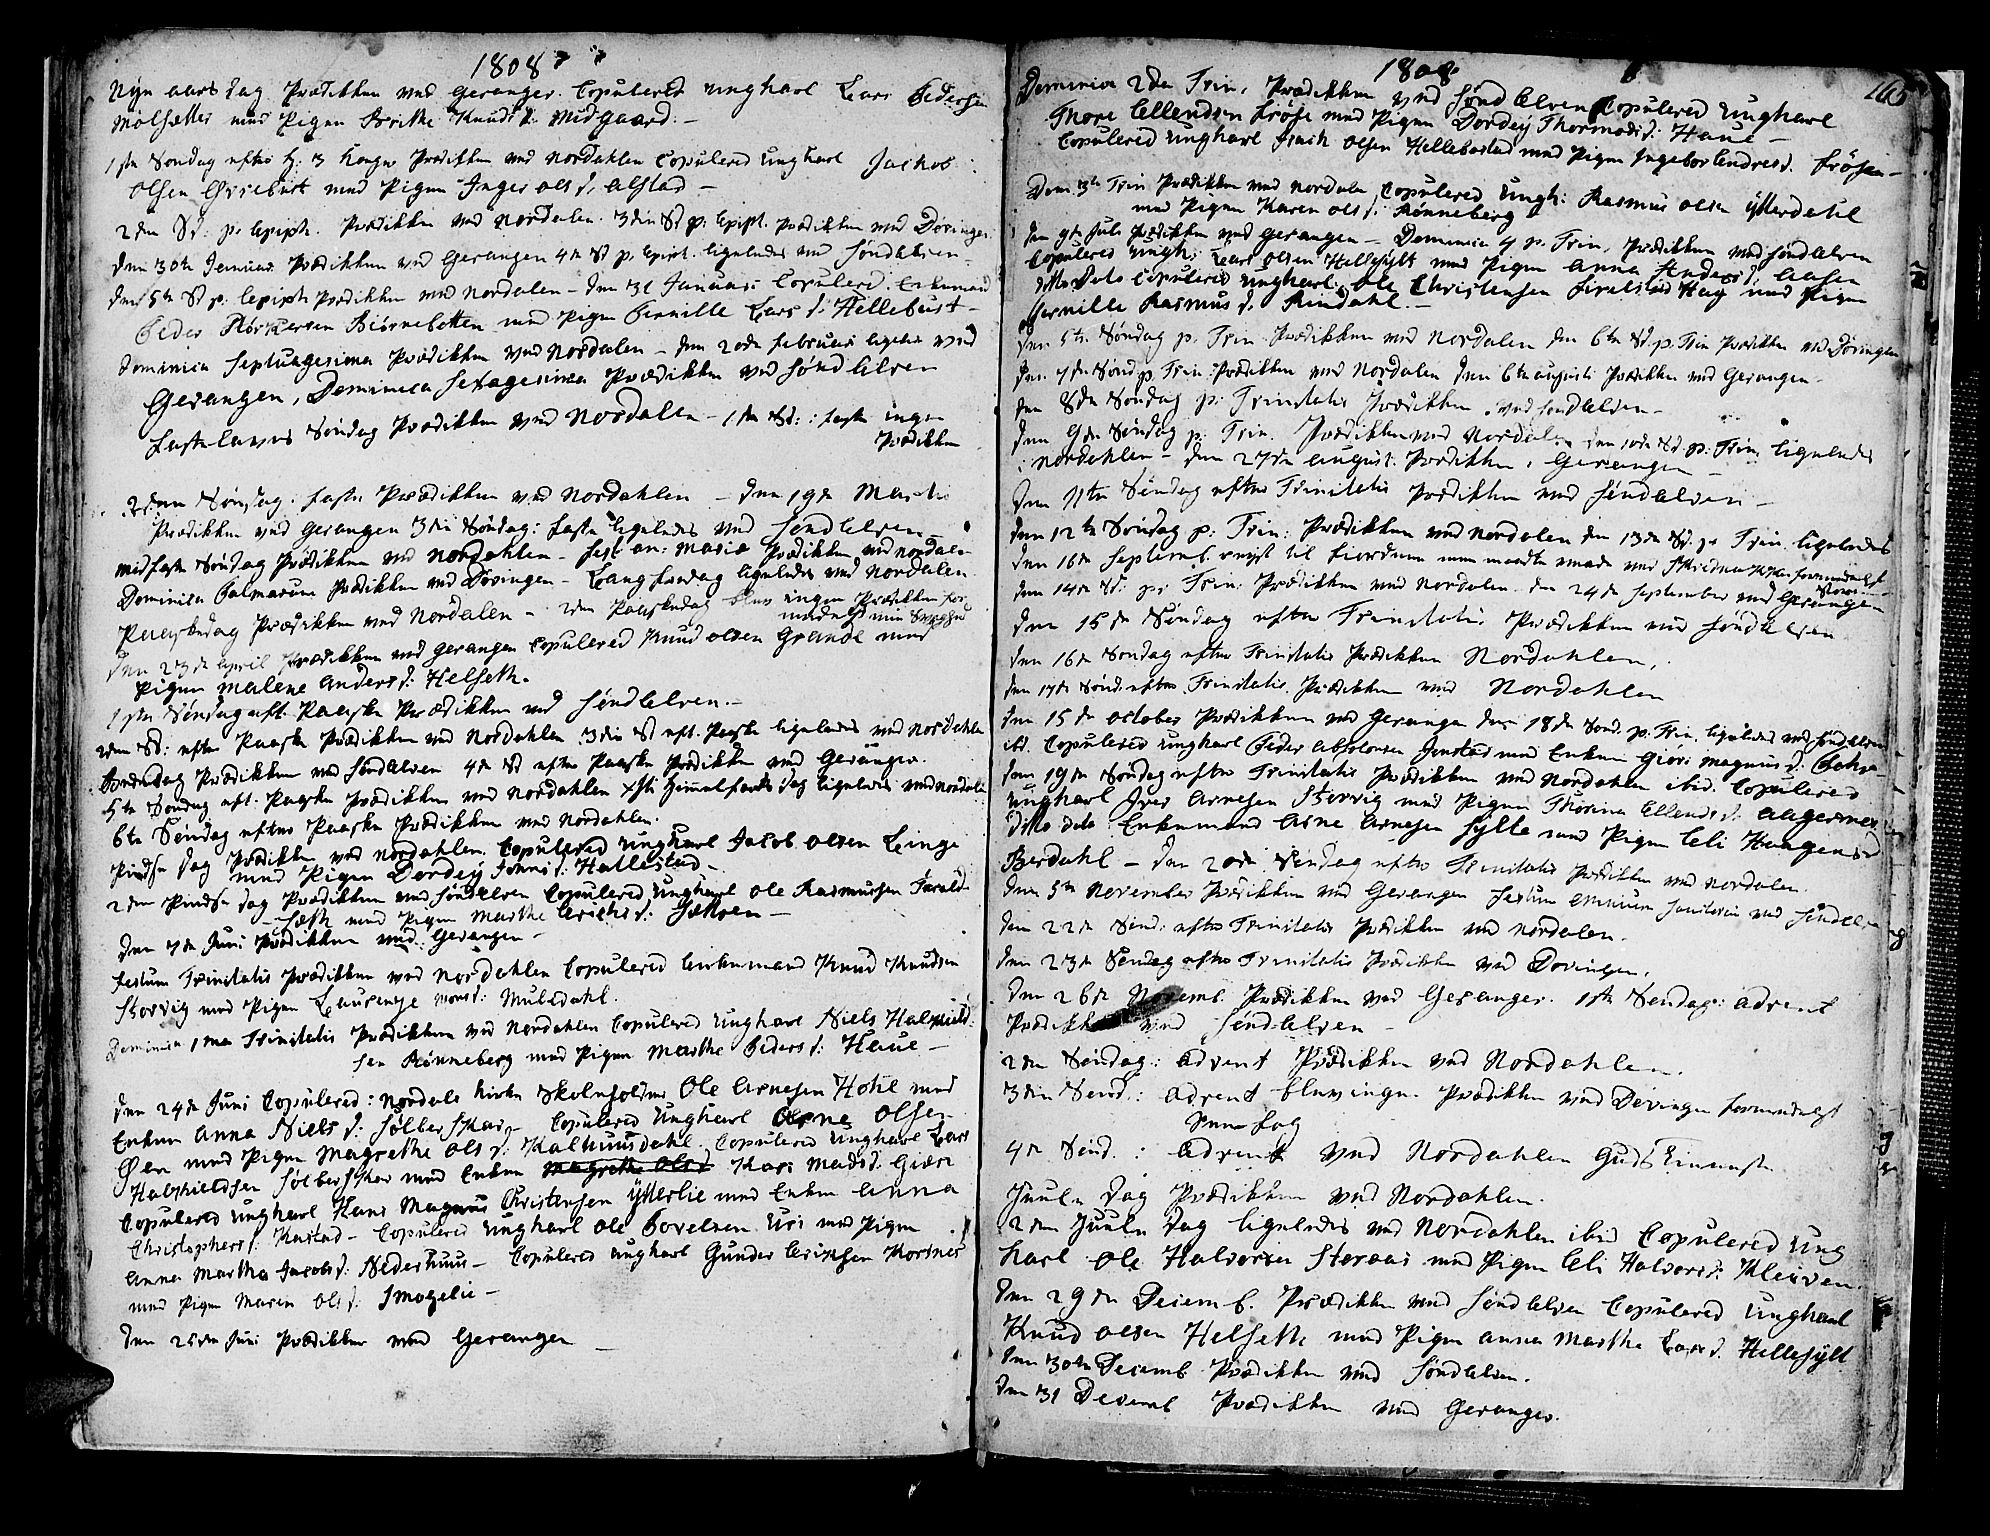 1808
Nyn aars dag Prædikken ved Geranger. Copulered ungkarl Lars Pedersen
Molsetter med Pigen Brithe Knudsd: Midgaard. –
1ste Søndag efter h: 3 konger Prædikken ved Nordahlen Copulered Ungkarl Jachob
Olsen med Pigen Inger Olsd. Alstad –
2den Sd: p. Epiph. Prædikken ved Nordalen. 3die Sd p. Epiph. Prædikken ved Døringen
den 30te Januar. Prædikken ved Gerangen 4de Sd p. Epiph. ligeledes ved Søndelven –
den 5te Sd p. Epiph Prædikken ved Nordalen – den 31 Januari Copulered Enkemand
Peder Biørnebotten med Pigen Pernille Lars d. Hellebust –
Dominica Septuagesima Prædikken ved Nordalen – den 20de Februari ligeled ved
Gerangen, Dominica Sexagesima Prædikken ved Søndelven
Fastelavns Søndag Prædikken ved Nordalen – 1ste Sd: i faste ingen
Prædikken
2den Søndag i faste Prædikken ved Nordahlen – den 19de Martii
Prædikken ved Gerangen 3die Søndag i faste ligeledes ved Søndelven
Midfaste Søndag Prædikken ved Nordahlen – Fest an: Mariæ Prædikken ved Nordalen
Dominica Palmarum Prædikken ved Døringen – Langfredag ligeledes ved Nordalen
Paaskedag Prædikken ved Nordalen – 2den Paaskedag blev ingen Prædikken for
medelst min
den 23de April Prædikken ved Gerangen Copulered Knud Olsen Grande med
Pigen Malene Anders d: Helseth.
1ste Søndag eft. Paaske Prædikken ved Søndelven –
2den Sd: efter Paaske Prædikken ved Nordahlen 3die Sd eft. Paaske ligeledes ved Nordahlen
Bededag Prædikken ved Søndelven 4de Sd efter Paaske Prædikken ved Geranger.
5te Søndag eft. Paaske Prædikken ved Nordahlen Χsti Himmelfarts dag ligeledes ved Nordalen
6te Søndag efter Paaske Prædikken ved Nordahlen.
Pindse dag Prædikken ved Nordahlen. Copulered ungkarl Jacob Olsen Linge
med Pigen Dordey Jonsd: Hallestad –
2den Pindse dag Prædikken ved Søndelven Copulered Ungkarl Ole Rasmusen
med Pigen Marthe Erichs d:
den 7de Juni Prædikken ved Gerangen –
Festum Trinitatis Prædikken ved Nordahlen Copulered Enkemand Knud Knudsen
Storvig med Pigen Laurentze Muldahl.
Dominica 1ma Trinitatis Prædikken ved Nordahlen Copulered Ungkarl Niels Halkield
sen Rønneberg med Pigen Marthe Peders d: Haue –
den 24de Juni Copulered i Nordals kirke Skoleholder Ole Arnesen Hotil med
Enken Anna Niels d: Sølberskar – Copulered Ungkarl Arne Olsen
Øen med Pigen Magrethe Ols d: Kalhuusdahl. Copulered Ungkarl Lars
Halkieldsen Sølberskar med Enken Magrethe Olsd Kari Mads d. Giære
Copulered Ungkarl Hans Magnus Christensen Ytterlie med Enken Anna
Christophersd: Kastad – Copulered Ungkarl Ole Povelsen Uri med Pigen
Anna Martha Jacobsd: Nederhuus – Copulered ungkarl Gunder Erichsen Korsnes
med Pigen Maren Ols d: Smogelie –
den 25de Juni Prædikken ved Gerangen –
1808
Dominica 2den Trin. Prædikken ved Søndelven Copulered Ungkarl
Thore Ellendsen Frøse med Pigen Dordey Thormods d: Haue –
Copulered ungkarl Olsen Hellebostad med Pigen Ingebor Endresd. Frøsen –
Dom: 3te Trin Prædikken ved Nordalen Copulered Ungk: Rasmus Olsen Ytterdahl
med Pigen Karen Ols d: Rønneberg
den 9de Juli Prædikken ved Gerangen – Dominica 4 p. Trin. Prædikken ved Søndelven
Copulered Ungk: Lars Olsen Hellesylt med Pigen Anna Andersd: Aasen
ditto dato Copulered ungkarl. Ole Christensen med Pigen
Pernille Rasmus d. Rindahl –
den 5te Søndag p. Trin. Prædikken ved Nordalen den 6te Sd. p. Trin Prædikken ved Døringen
den 7de Sønd p Trin. Prædikken ved Nordalen den 6te Augusti Prædikken ved Gerangen –
den 8de Søndag p. Trinitatis Prædikken ved Søndelven –
den 9de Søndag p. Trin. Prædikken ved Nordalen den 10de Sd. p. Trin. ligeledes
i Nordahlen – den 27de August. Prædikken i Gerangen –
den 11te Søndag efter Trinitatis Prædikken ved Søndelven –
den 12te Søndag p. Trin: Prædikken ved Nordalen den 13de Sd. p. Trin. ligeledes
den 16de Septemb. reyst til Fiordene men maatte vende ved formedelst
Storm
den 14de Sd: p. Trin: Prædikken ved Nordalen. den 24de September ved Gerangen
den 15de Søndag efter Trinitatis Prædikken ved Søndelven
den 16de Søndag efter Trinitatis Prædikken Nordahlen,
den 17de Sønd. efter Trinitatis Prædikken ved Nordahlen
den 15de October Prædikken ved Geranger den 18de Sønd. p. Trin. ligeledes ved Søndelven
ibd. Copulered ungkarl Peder Absolonsen med Enken Giøri Magnus d.
den 19de Søndag efter Trinitatis Prædikken ved Nordahlen ibid. Copulered
ungkarl Iver Arnesen Storvig med Pigen Thorina Ellends d:
ditto dato: Enkemand Arne Arnesen Sylte med Pigen Eli
Berdahl – den 20de Søndag efter Trinitatis Prædikken ved Nordalen.
den 5te November Prædikken ved Gerangen Festum Omnium Sanctorum ved Søndelven
den 22de Sønd: efter Trinitatis Prædikken ved Nordalen.
den 23de Søndag efter Trinitatis Prædikken ved Dovingen.
den 26de Novemb. Prædikken ved Geranger. 1ste Søndag: Advent
Prædikken ved Søndelven –
2den Søndag: Advent Prædikken ved Nordahlen.
3die Sønd: Advent blev ingen Prædikken ved Døvingen formedelst
4de Sønd.: Advent ved Nordahlen Gudstieneste
Juule dag Prædikken ved Nordahlen.
2den Juule dag ligeledes ved Nordahlen ibid Copulered Ung
karl Ole Halvorsen Storaas med Pigen Eli Halvorsd: Kleiven.
den 29de Decemb. Prædikken ved Søndelven Copulered Ungkarl
Knud Olsen Helseth med Pigen Anna Marthe Lars d. Hellesylt
den 30te Decemb Prædikken ved Søndelven.
den 31 Decemb Prædikken ved Geranger.